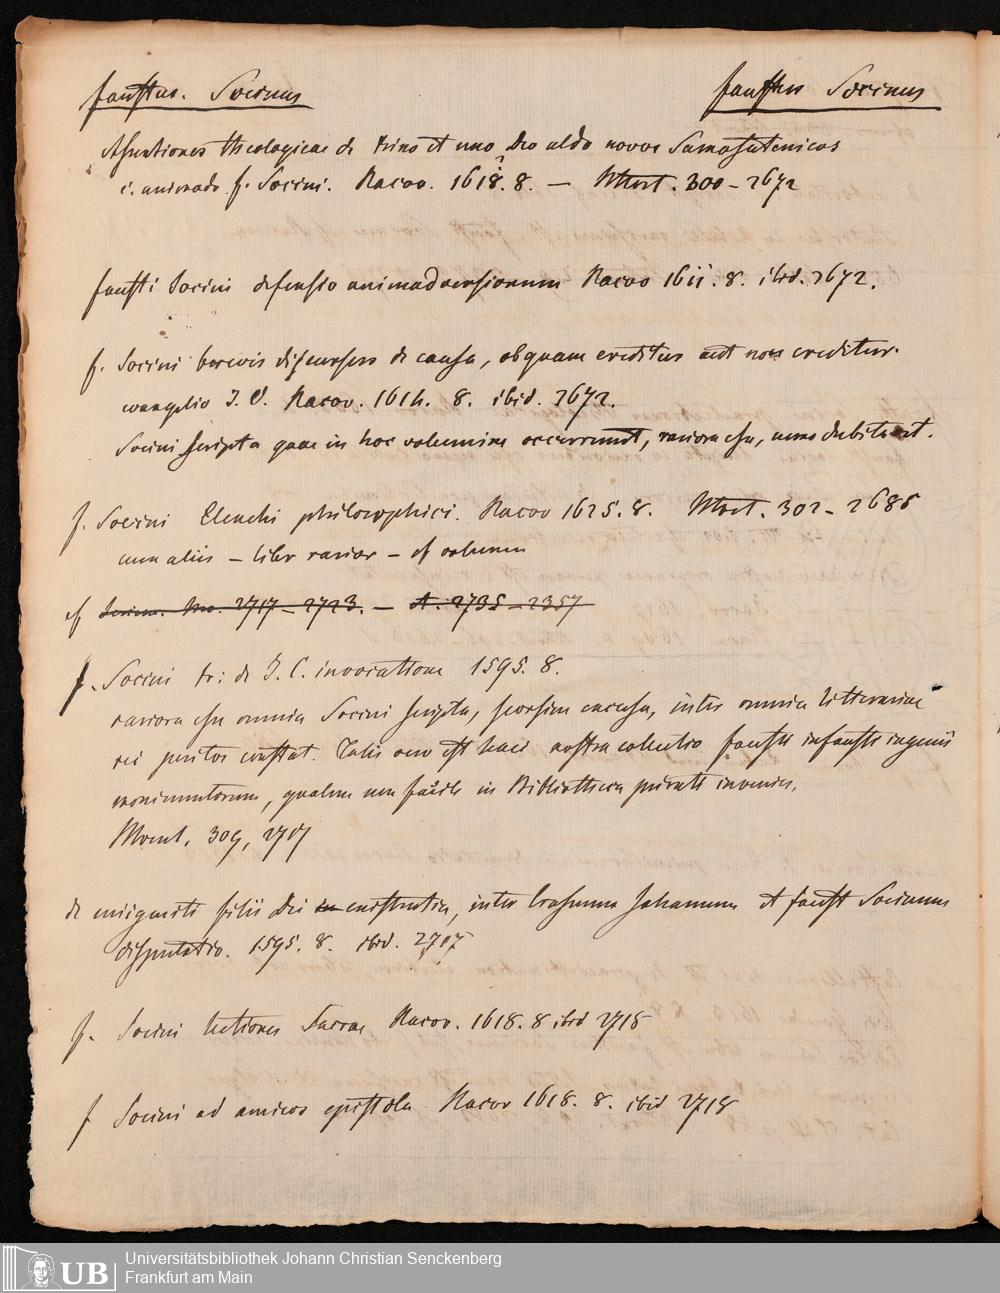 Faustus. Socinus
Faustus Socinus
Assertiones theologicae de trino et uno Deo aldo novos Samosatenicos
c. animado f. Socini. Racov. 1618. 8. — Mort. 300 - 2672
Fausti Socini defensio animadversionum Racov 1611. 8. ibid. 2672.
f. Socini brevis discursus de causa, ob quam creditur aut non creditur
evangelio J. C. Racov. 1614. 8. ibid. 2672.
Socini scripta quae in hoc volumine occurrunt, rariora esse, nemo dubitat.
f. Socini Elenchi philosophici. Racov 1625. 8. Mort. 302 - 2686
cum aliis — liber rarior — cf volumen
cf 2717 - 2723. — A. 2735 - 2357
f. Socini tr: de J. C. invocatione 1595. 8.
rariora esse omnia Socini scripta, seorsim excusa, inter omnes litterariae
rei peritos constat. Talis vero est haec nostra collectio Fausti infausti ingenii
monimentorum, qualem non facile in Bibliotheca privata invenies.
Mort. 309, 2717
de unigeniti filii Dei existentia, inter Erasmum Johannem et Faust Socinum
disputatio. 1595. 8. ibid. 2717
f. Socini lectiones Sacrae Racov. 1618. 8 ibid 2718
f Socini ad amicos epistolae Racov 1618. 8. ibid 2718
UB Universitätsbibliothek Johann Christian Senckenberg
Frankfurt am Main